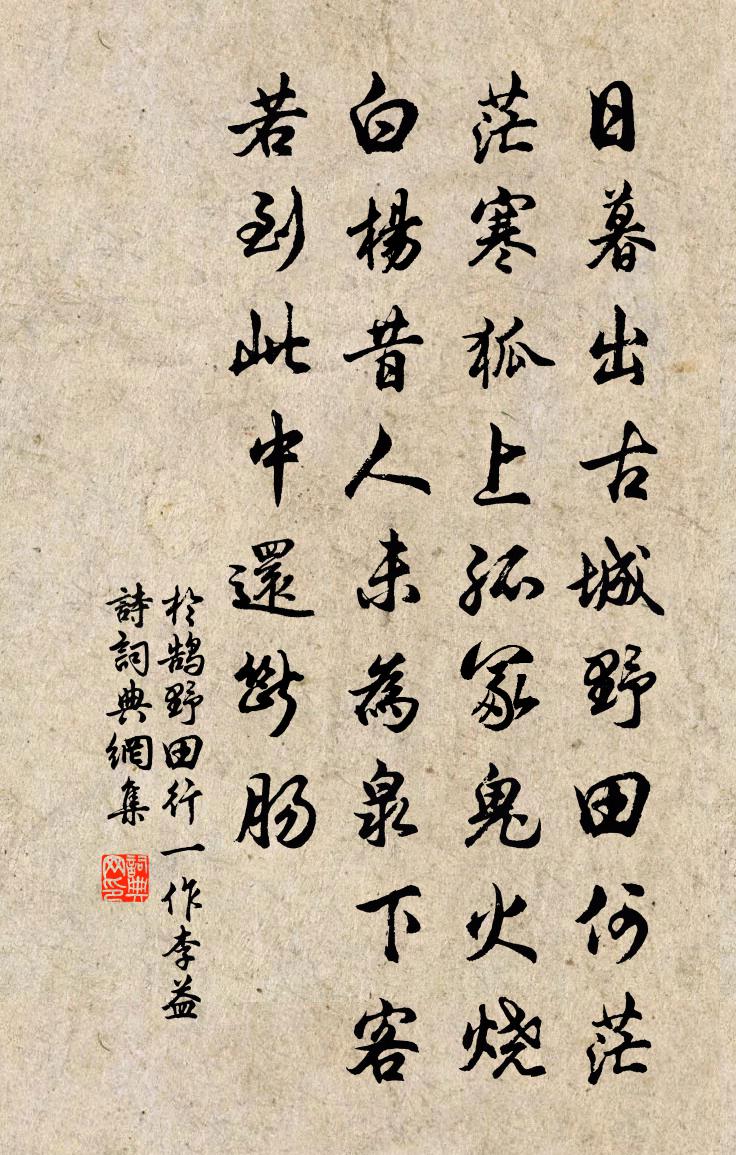 日暮出古城野田何茫
茫寒狐上孤冢鬼火燒
白楊昔人未為泉下客
若到此中還斷腸
於鵠野田行一作李益
詩詞典網集
詞典
网印